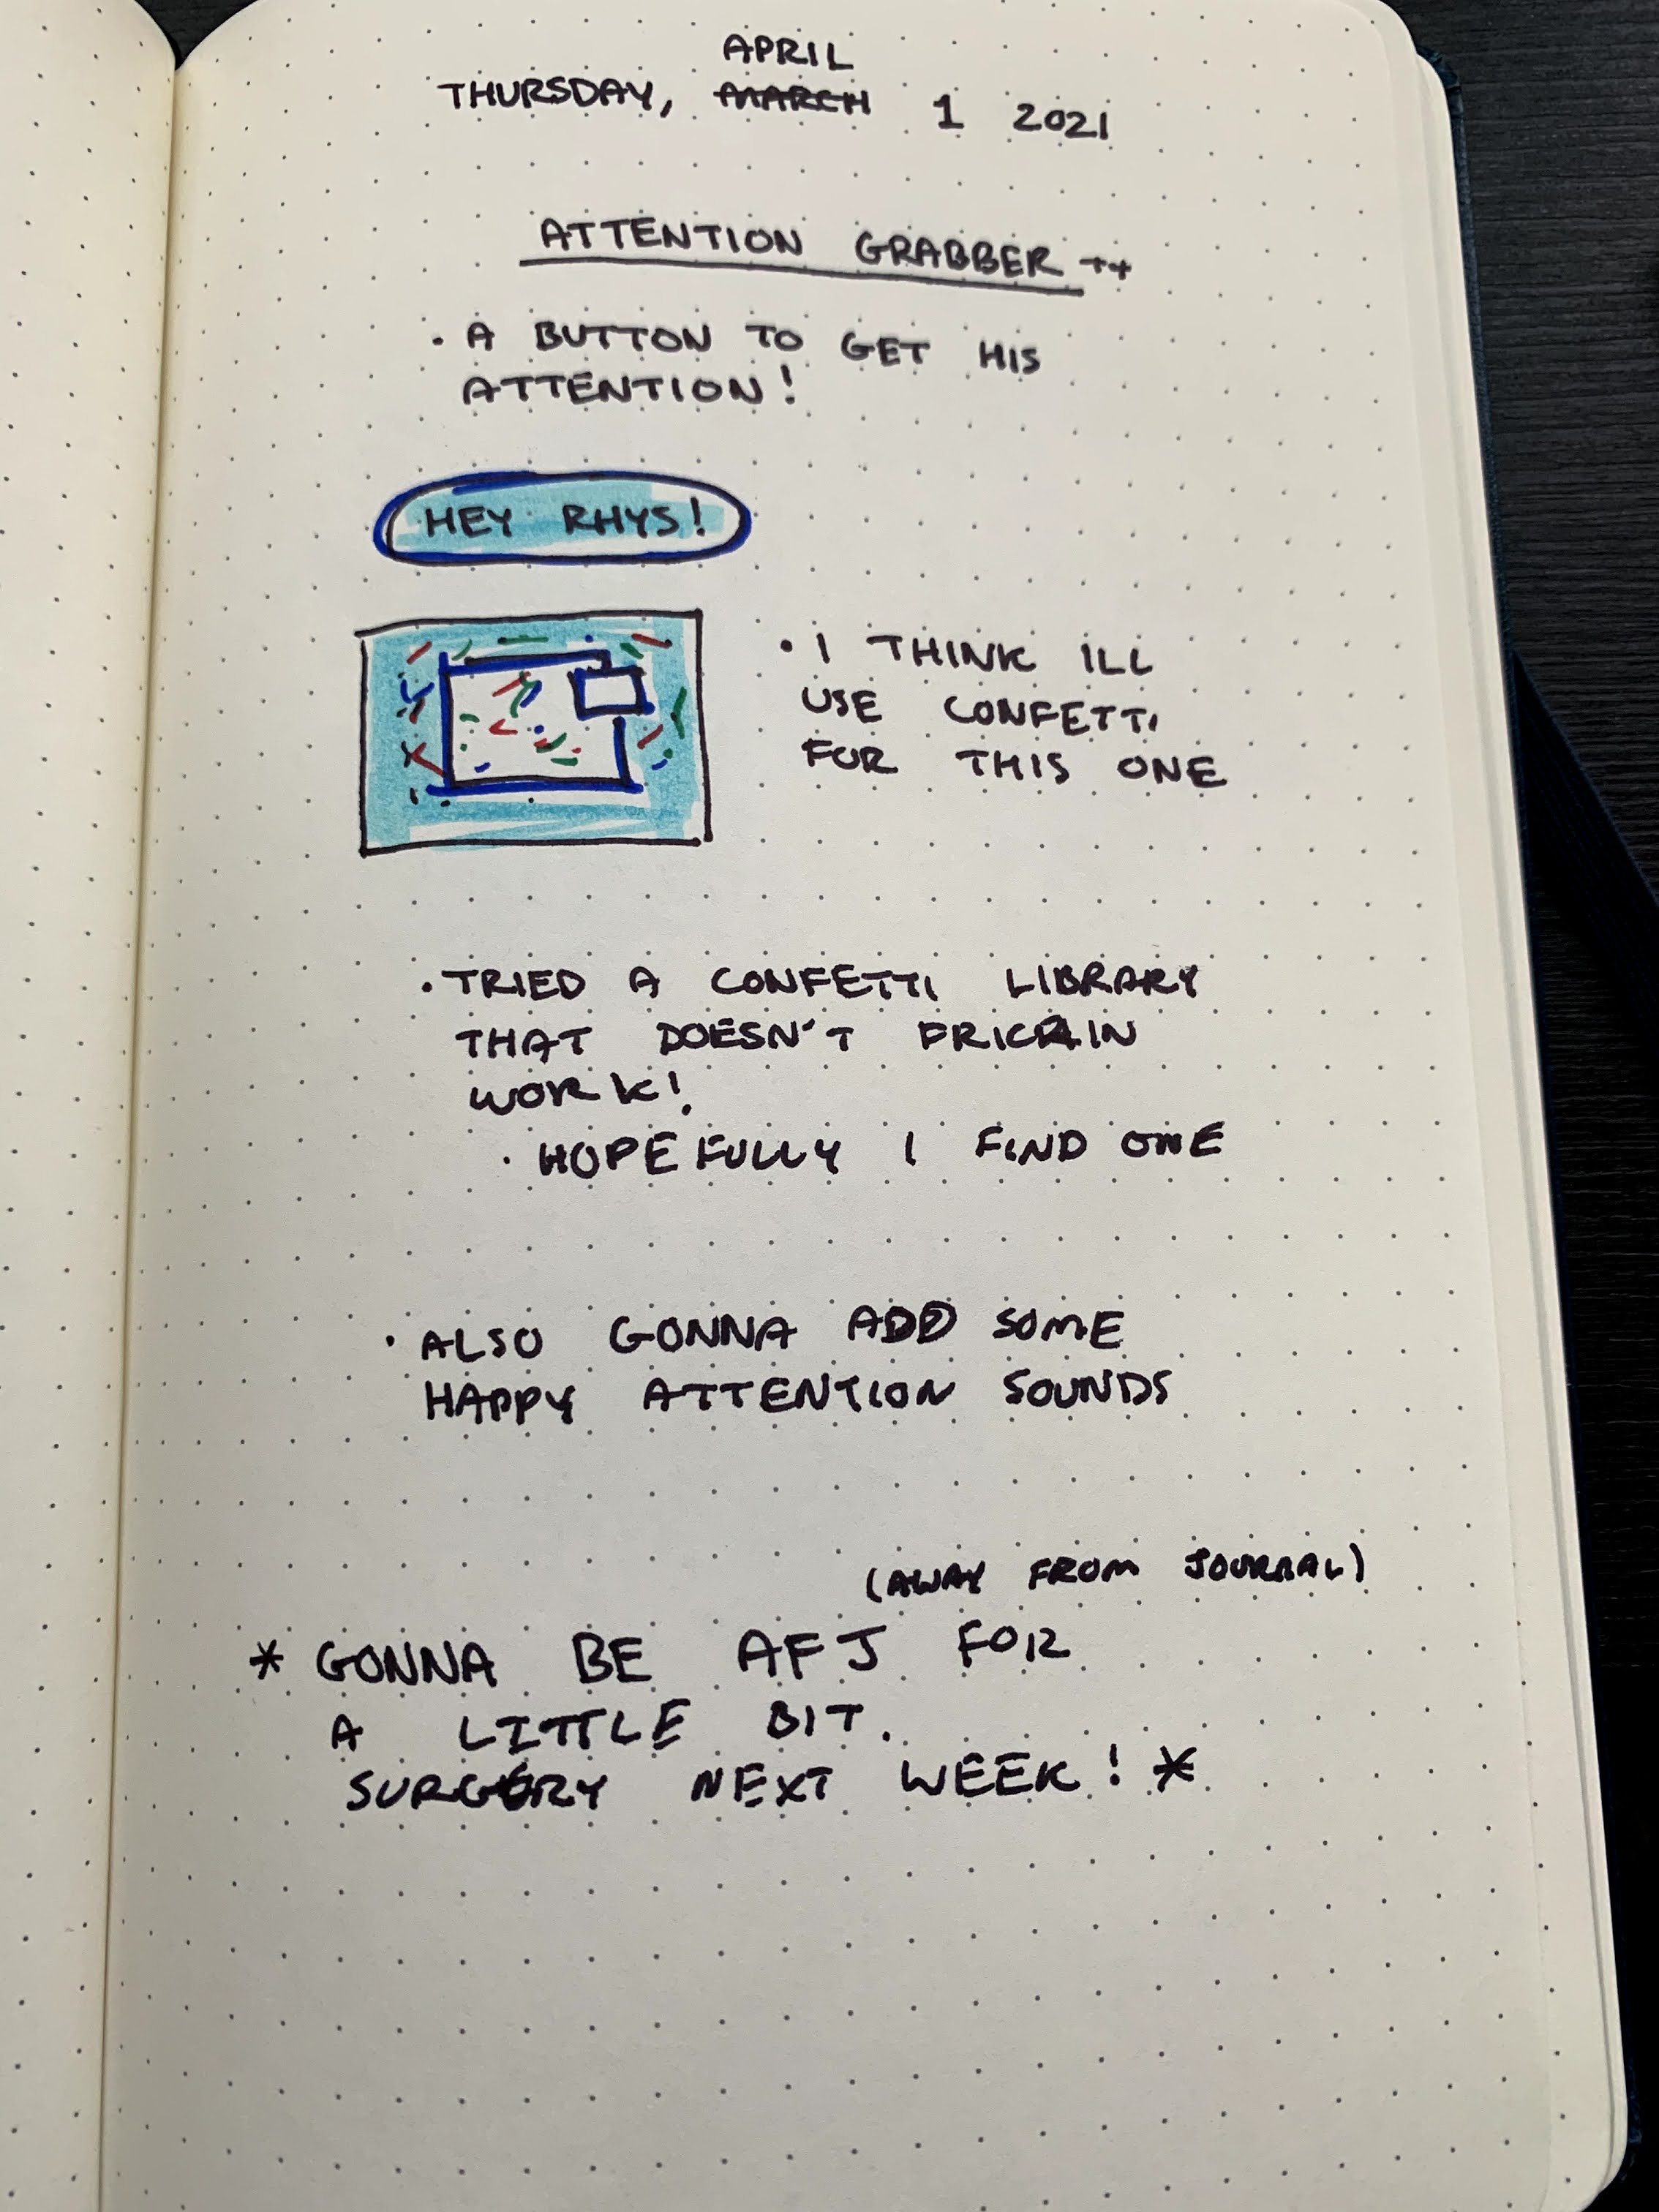 APRIL
THURSDAY, MARCH 1 2021
ATTENTION GRABBER ++
· A BUTTON TO GET HIS
ATTENTION!
HEY RHYS!
· I THINK ILL
USE CONFETTI
FOR THIS ONE
· TRIED A CONFETTI LIBRARY
THAT DOESN'T FRICKIN
WORK!
· HOPEFULLY I FIND ONE
· ALSO GONNA ADD SOME
HAPPY ATTENTION SOUNDS
(AWAY FROM JOURNAL)
* GONNA BE AFJ FOR
A LITTLE BIT.
SURGERY NEXT WEEK! *